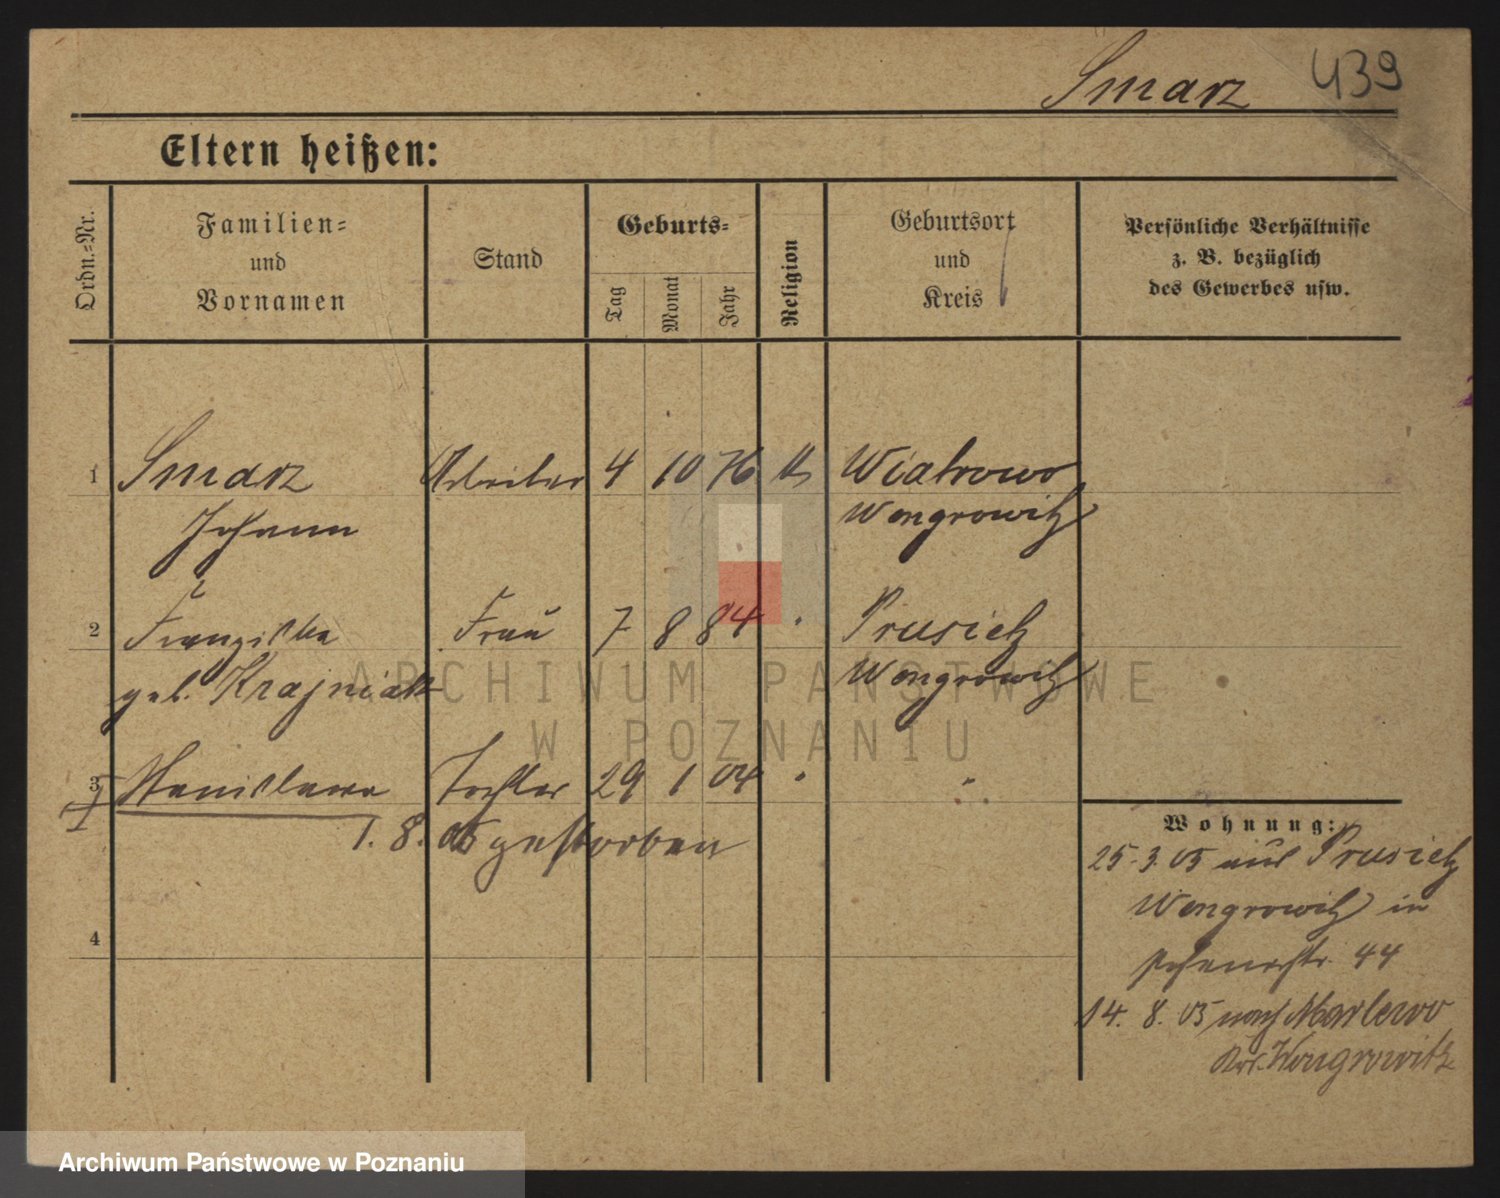 Smarz 439
Eltern heißen:
Ordn.-Nr.
Familien-
und
Vornamen
Stand
Geburts-
Tag
Monat
Jahr
Religion
Geburtsort
und
Kreis
Persönliche Verhältnisse
z. B. bezüglich
des Gewerbes usw.
1 Smarz Arbeiter 4 10 76 Wiatrowo
Johann Wongrowitz
2 Franziska Frau 7 8 84 Prusietz
geb. Krajniak Wongrowitz
3 Stanislawa Tochter 29 1 04 "
1. 8. 05 gestorben
4
Wohnung:
25.3.05 aus Prusietz
Wongrowitz in
44
14. 8. 05 nach Marlewo
Krs. Wongrowitz
ARCHIWUM PAŃSTWOWE
W POZNANIU
Archiwum Państwowe w Poznaniu